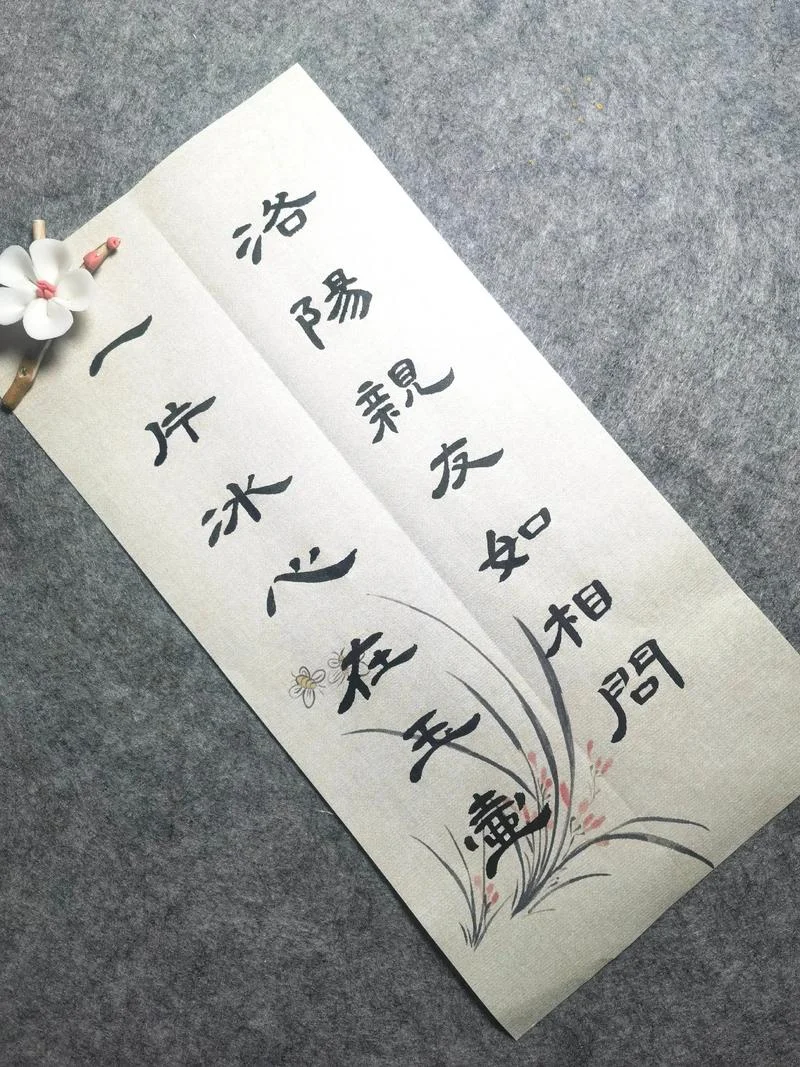 洛陽親友如相問
一片冰心在玉壺